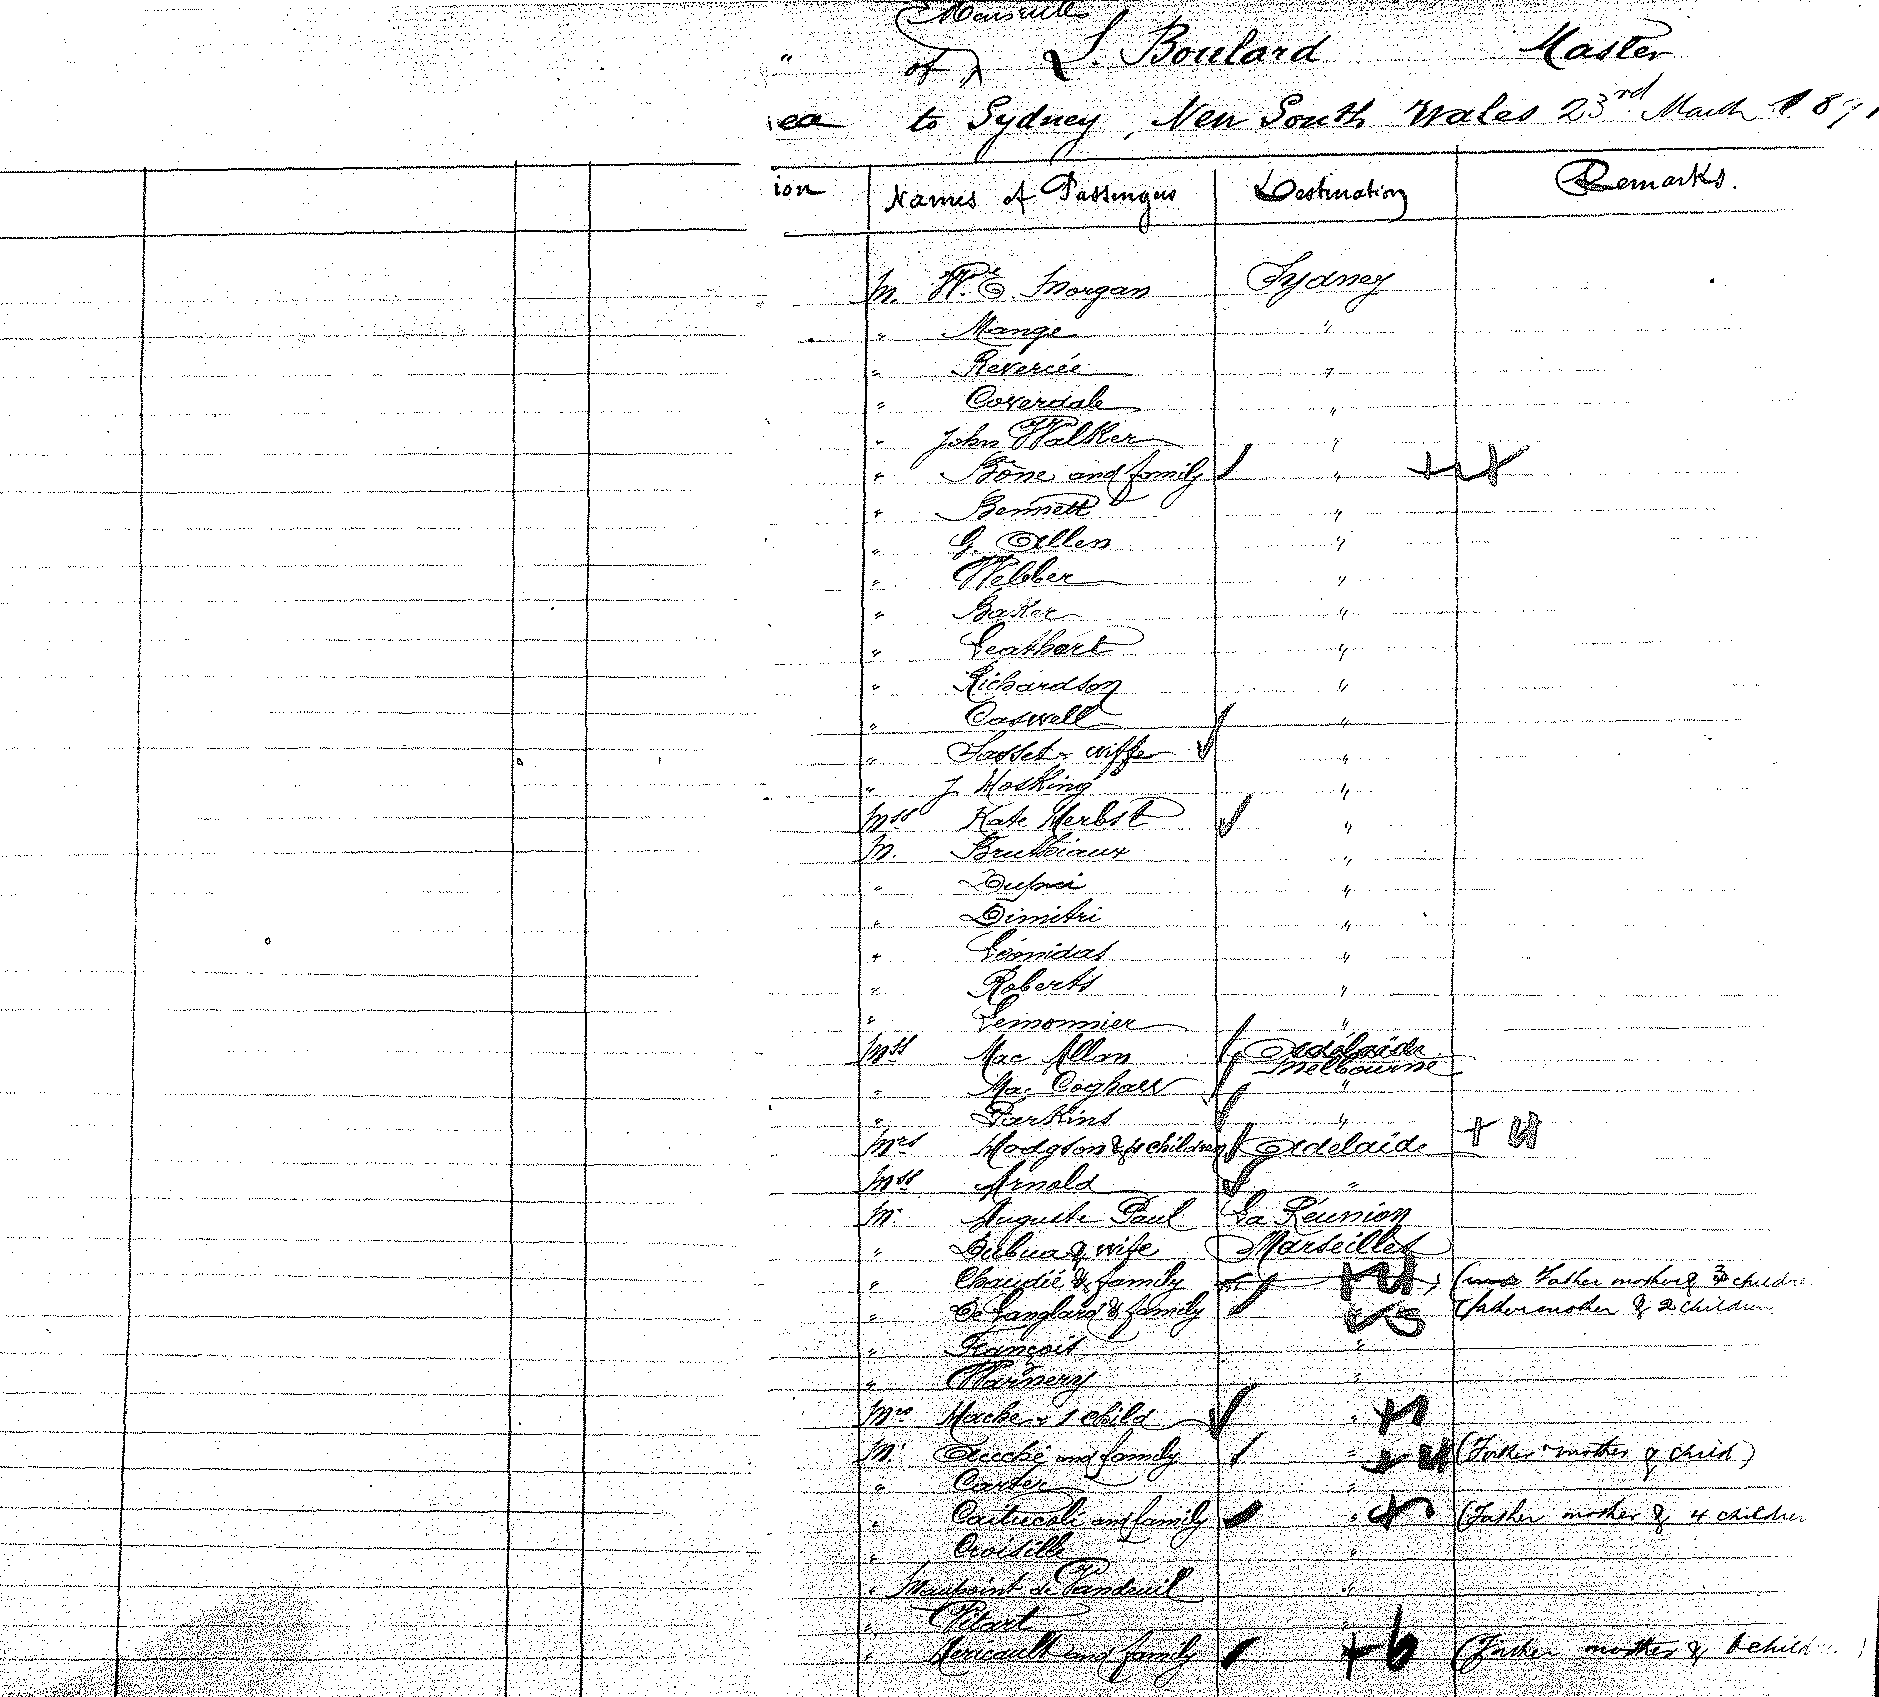 Marseille
" of L. Boulard Master
ea to Sydney, New South Wales 23rd March 189
ion Names of Passengers Destination Remarks.
M. W. E. Morgan Sydney
" Mange "
" Reverciée "
" Coverdale "
" John Walker "
" Bone and family "
" Bennett "
" G. Allen "
" Webber "
" Baker "
" Leathart "
" Richardson "
" Caswell "
" Sasset & wiffe "
" J Hosking "
Mss Kate Herbst "
M. Bruthiaux "
" "
" Dimitri "
" Léonidas "
" Roberts "
" Lemonnier "
Mss Mac Allan Adelaide Melbourne
" Mac "
" Parkins "
Mrs Hodgson & 4 children Adelaide
Mss Arnold "
M. Auguste Paul La Réunion
" Dubua & wife Marseilles
" Chaudié & family (Father mother & 3 childre
" De Langlard & family (father mother & 2 children
" François "
" Warnery "
Mrs Macke & 1 child "
M. and family " (Father mother & child)
" Carter "
" and family " (Father mother & 4 children
" Croisille "
" de Pandeuil "
" Pitart "
" Hericault and family +6 (Father mother & child